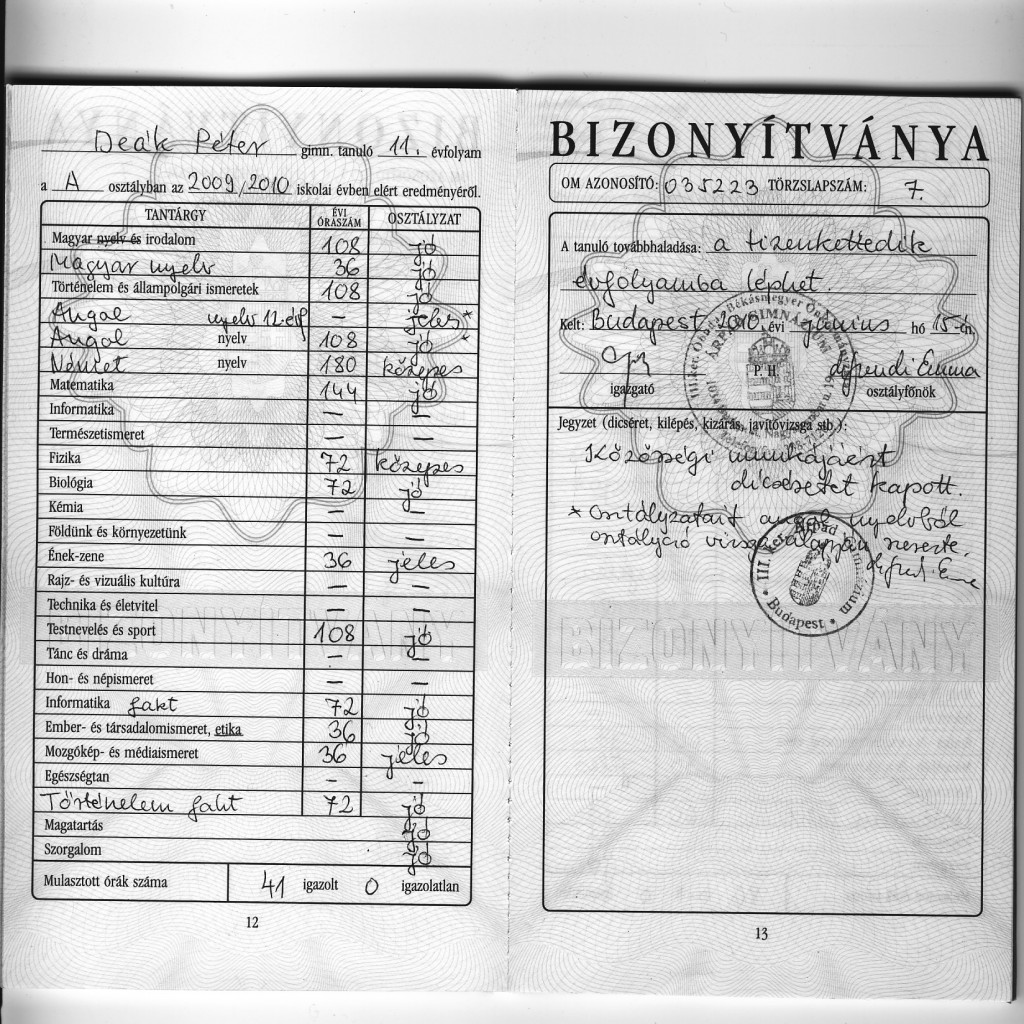 Deák Péter gimn. tanuló 11. évfolyam
a A osztályban az 2009/2010 iskolai évben elért eredményéről.
TANTÁRGY ÉVI ÓRASZÁM OSZTÁLYZAT
Magyar nyelv és irodalom 108 jó
Magyar nyelv 36 jó
Történelem és állampolgári ismeretek 108 jó
Angol nyelv 12. évf – jeles *
Angol nyelv 108 jó
Német nyelv 180 közepes
Matematika 144 jó
Informatika – –
Természetismeret – –
Fizika 72 közepes
Biológia 72 jó
Kémia – –
Földünk és környezetünk – –
Ének-zene 36 jeles
Rajz- és vizuális kultúra – –
Technika és életvitel – –
Testnevelés és sport 108 jó
Tánc és dráma – –
Hon- és népismeret – –
Informatika fakt 72 jó
Ember- és társadalomismeret, etika 36 jó
Mozgókép- és médiaismeret 36 jeles
Egészségtan – –
Történelem fakt 72 jó
Magatartás jó
Szorgalom jó
Mulasztott órák száma 41 igazolt 0 igazolatlan
12
BIZONYÍTVÁNYA
OM AZONOSÍTÓ: 035223 TÖRZSLAPSZÁM: 7.
A tanuló továbbhaladása: a tizenkettedik
évfolyamba léphet.
Kelt: Budapest 2010. évi június hó 15-én
P. H.
igazgató osztályfőnök
Jegyzet (dicséret, kilépés, kizárás, javítóvizsga stb.):
Közösségi munkájáért
dicséretet kapott.
* Osztályzatait angol nyelvből
osztályozó vizsga alapján szerezte.
III. ker. Árpád Gimnázium
* Budapest *
BIZONYÍTVÁNY
13